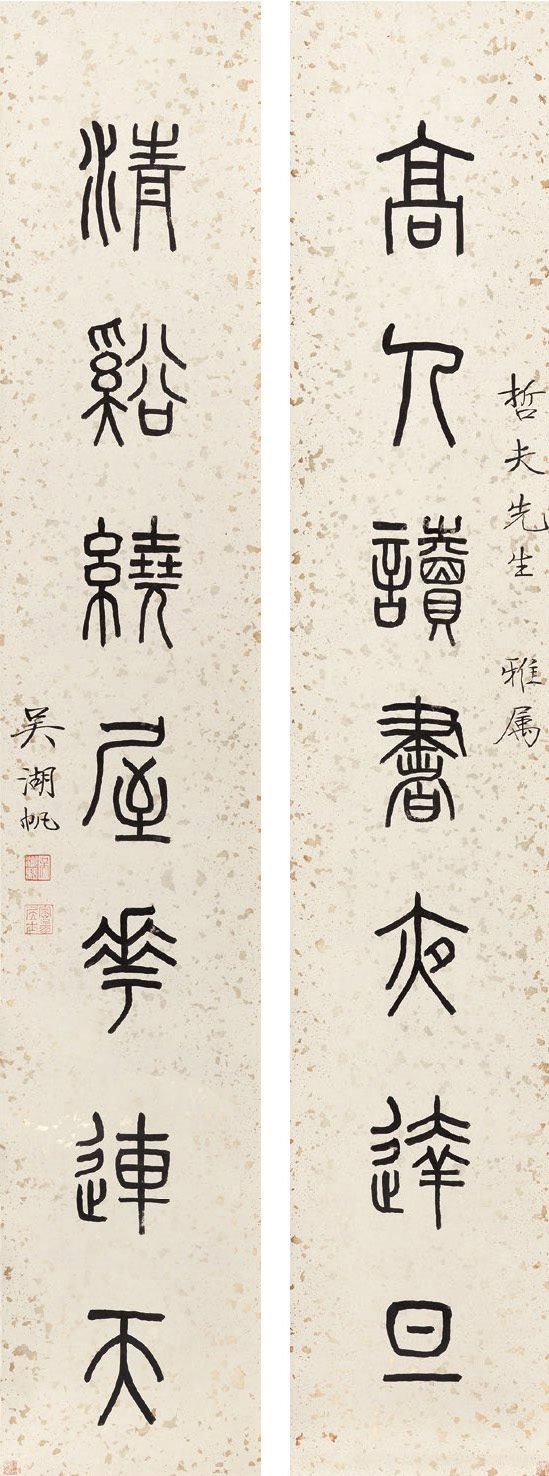 哲夫先生 雅属
高人讀書夜達旦
清谿繞屋花連天
吴湖帆